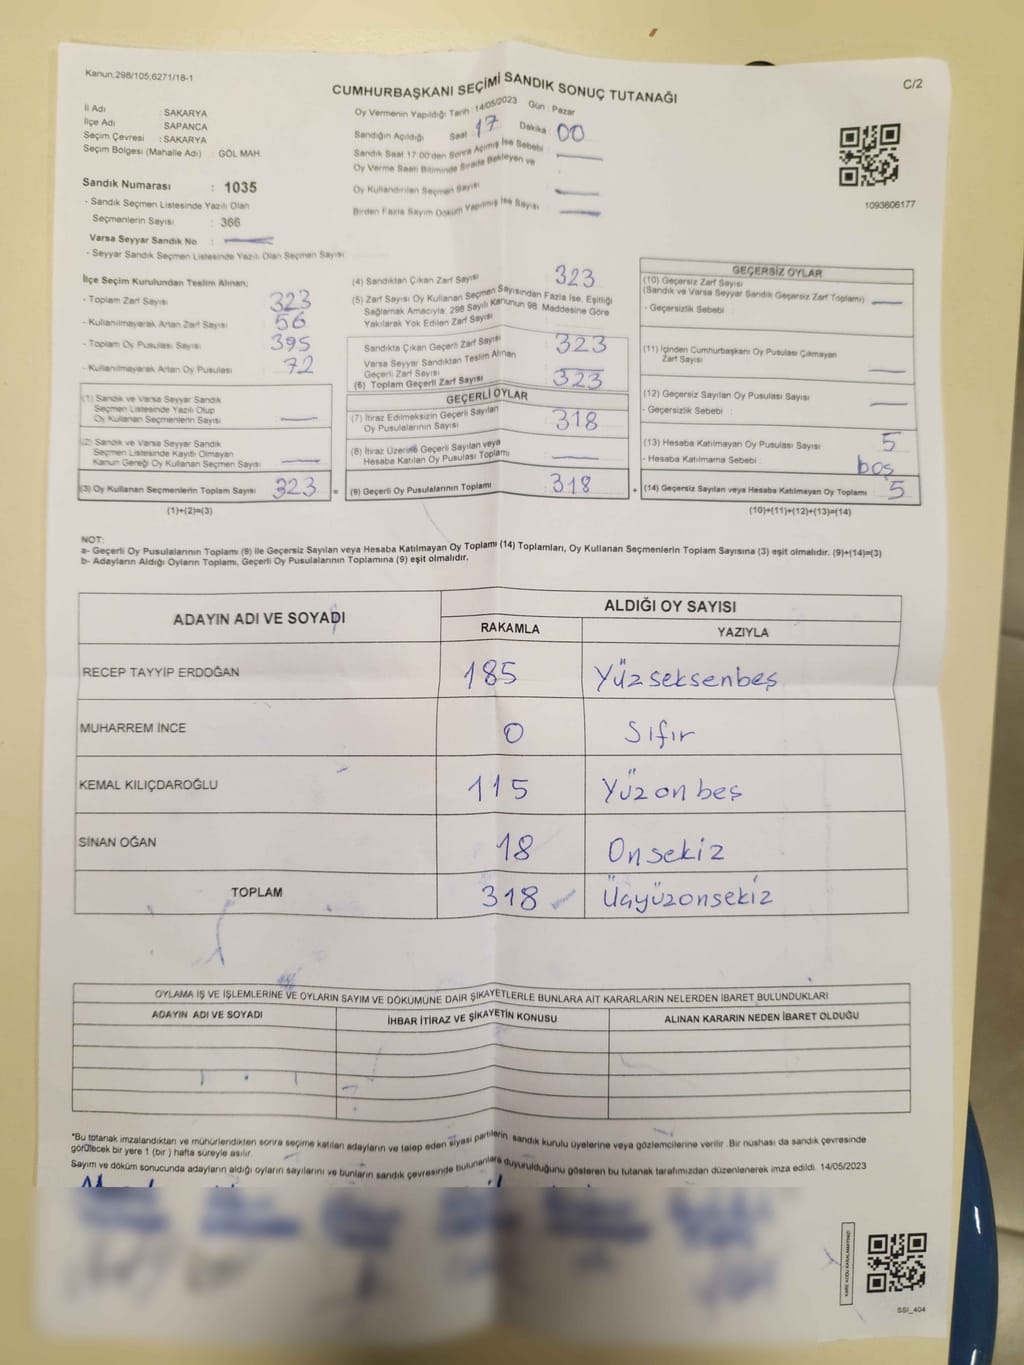 Kanun:298/105;6271/18-1
C/2
CUMHURBAŞKANI SEÇİMİ SANDIK SONUÇ TUTANAĞI
İl Adı : SAKARYA
İlçe Adı : SAPANCA
Seçim Çevresi : SAKARYA
Seçim Bölgesi (Mahalle Adı) : GÖL MAH.
Sandık Numarası : 1035
- Sandık Seçmen Listesinde Yazılı Olan
Seçmenlerin Sayısı : 366
Varsa Seyyar Sandık No :
- Seyyar Sandık Seçmen Listesinde Yazılı Olan Seçmen Sayısı:
Oy Vermenin Yapıldığı Tarih : 14/05/2023 Gün : Pazar
Sandığın Açıldığı Saat 17 Dakika 00
Sandık Saat 17:00'den Sonra Açılmış İse Sebebi :
Oy Verme Saati Bitiminde Sırada Bekleyen ve
Oy Kullandırılan Seçmen Sayısı
Birden Fazla Sayım Döküm Yapılmış İse Sayısı :
1093606177
İlçe Seçim Kurulundan Teslim Alınan;
- Toplam Zarf Sayısı : 323
- Kullanılmayarak Artan Zarf Sayısı : 56
- Toplam Oy Pusulası Sayısı : 395
- Kullanılmayarak Artan Oy Pusulası : 72
(1) Sandık ve Varsa Seyyar Sandık
Seçmen Listesinde Yazılı Olup
Oy Kullanan Seçmenlerin Sayısı :
(2) Sandık ve Varsa Seyyar Sandık
Seçmen Listesinde Kayıtlı Olmayan
Kanun Gereği Oy Kullanan Seçmen Sayısı :
(3) Oy Kullanan Seçmenlerin Toplam Sayısı : 323
(1)+(2)=(3)
(4) Sandıktan Çıkan Zarf Sayısı : 323
(5) Zarf Sayısı Oy Kullanan Seçmen Sayısından Fazla İse, Eşitliği
Sağlamak Amacıyla; 298 Sayılı Kanunun 98. Maddesine Göre
Yakılarak Yok Edilen Zarf Sayısı :
Sandıkta Çıkan Geçerli Zarf Sayısı : 323
Varsa Seyyar Sandıktan Teslim Alınan
Geçerli Zarf Sayısı :
(6) Toplam Geçerli Zarf Sayısı : 323
GEÇERLİ OYLAR
(7) İtiraz Edilmeksizin Geçerli Sayılan
Oy Pusulalarının Sayısı : 318
(8) İtiraz Üzerine Geçerli Sayılan veya
Hesaba Katılan Oy Pusulası Toplamı :
= (9) Geçerli Oy Pusulalarının Toplamı : 318
GEÇERSİZ OYLAR
(10) Geçersiz Zarf Sayısı
(Sandık ve Varsa Seyyar Sandık Geçersiz Zarf Toplamı) :
- Geçersizlik Sebebi :
(11) İçinden Cumhurbaşkanı Oy Pusulası Çıkmayan
Zarf Sayısı :
(12) Geçersiz Sayılan Oy Pusulası Sayısı :
- Geçersizlik Sebebi :
(13) Hesaba Katılmayan Oy Pusulası Sayısı : 5
- Hesaba Katılmama Sebebi : boş
+ (14) Geçersiz Sayılan veya Hesaba Katılmayan Oy Toplamı : 5
(10)+(11)+(12)+(13)=(14)
NOT:
a- Geçerli Oy Pusulalarının Toplamı (9) ile Geçersiz Sayılan veya Hesaba Katılmayan Oy Toplamı (14) Toplamları, Oy Kullanan Seçmenlerin Toplam Sayısına (3) eşit olmalıdır. (9)+(14)=(3)
b- Adayların Aldığı Oyların Toplamı, Geçerli Oy Pusulalarının Toplamına (9) eşit olmalıdır.
ADAYIN ADI VE SOYADI
ALDIĞI OY SAYISI
RAKAMLA YAZIYLA
RECEP TAYYİP ERDOĞAN 185 Yüzseksenbeş
MUHARREM İNCE 0 Sıfır
KEMAL KILIÇDAROĞLU 115 Yüzonbeş
SİNAN OĞAN 18 Onsekiz
TOPLAM 318 Üçyüzonsekiz
OYLAMA İŞ VE İŞLEMLERİNE VE OYLARIN SAYIM VE DÖKÜMÜNE DAİR ŞİKAYETLERLE BUNLARA AİT KARARLARIN NELERDEN İBARET BULUNDUKLARI
ADAYIN ADI VE SOYADI İHBAR İTİRAZ VE ŞİKAYETİN KONUSU ALINAN KARARIN NEDEN İBARET OLDUĞU
*Bu tutanak imzalandıktan ve mühürlendikten sonra seçime katılan adayların ve talep eden siyasi partilerin sandık kurulu üyelerine veya gözlemcilerine verilir. Bir nüshası da sandık çevresinde
görülecek bir yere 1 (bir ) hafta süreyle asılır.
Sayım ve döküm sonucunda adayların aldığı oyların sayılarını ve bunların sandık çevresinde bulunanlara duyurulduğunu gösteren bu tutanak tarafımızdan düzenlenerek imza edildi. 14/05/2023
KARE KODU KARALAMAYINIZ!
SSİ_404